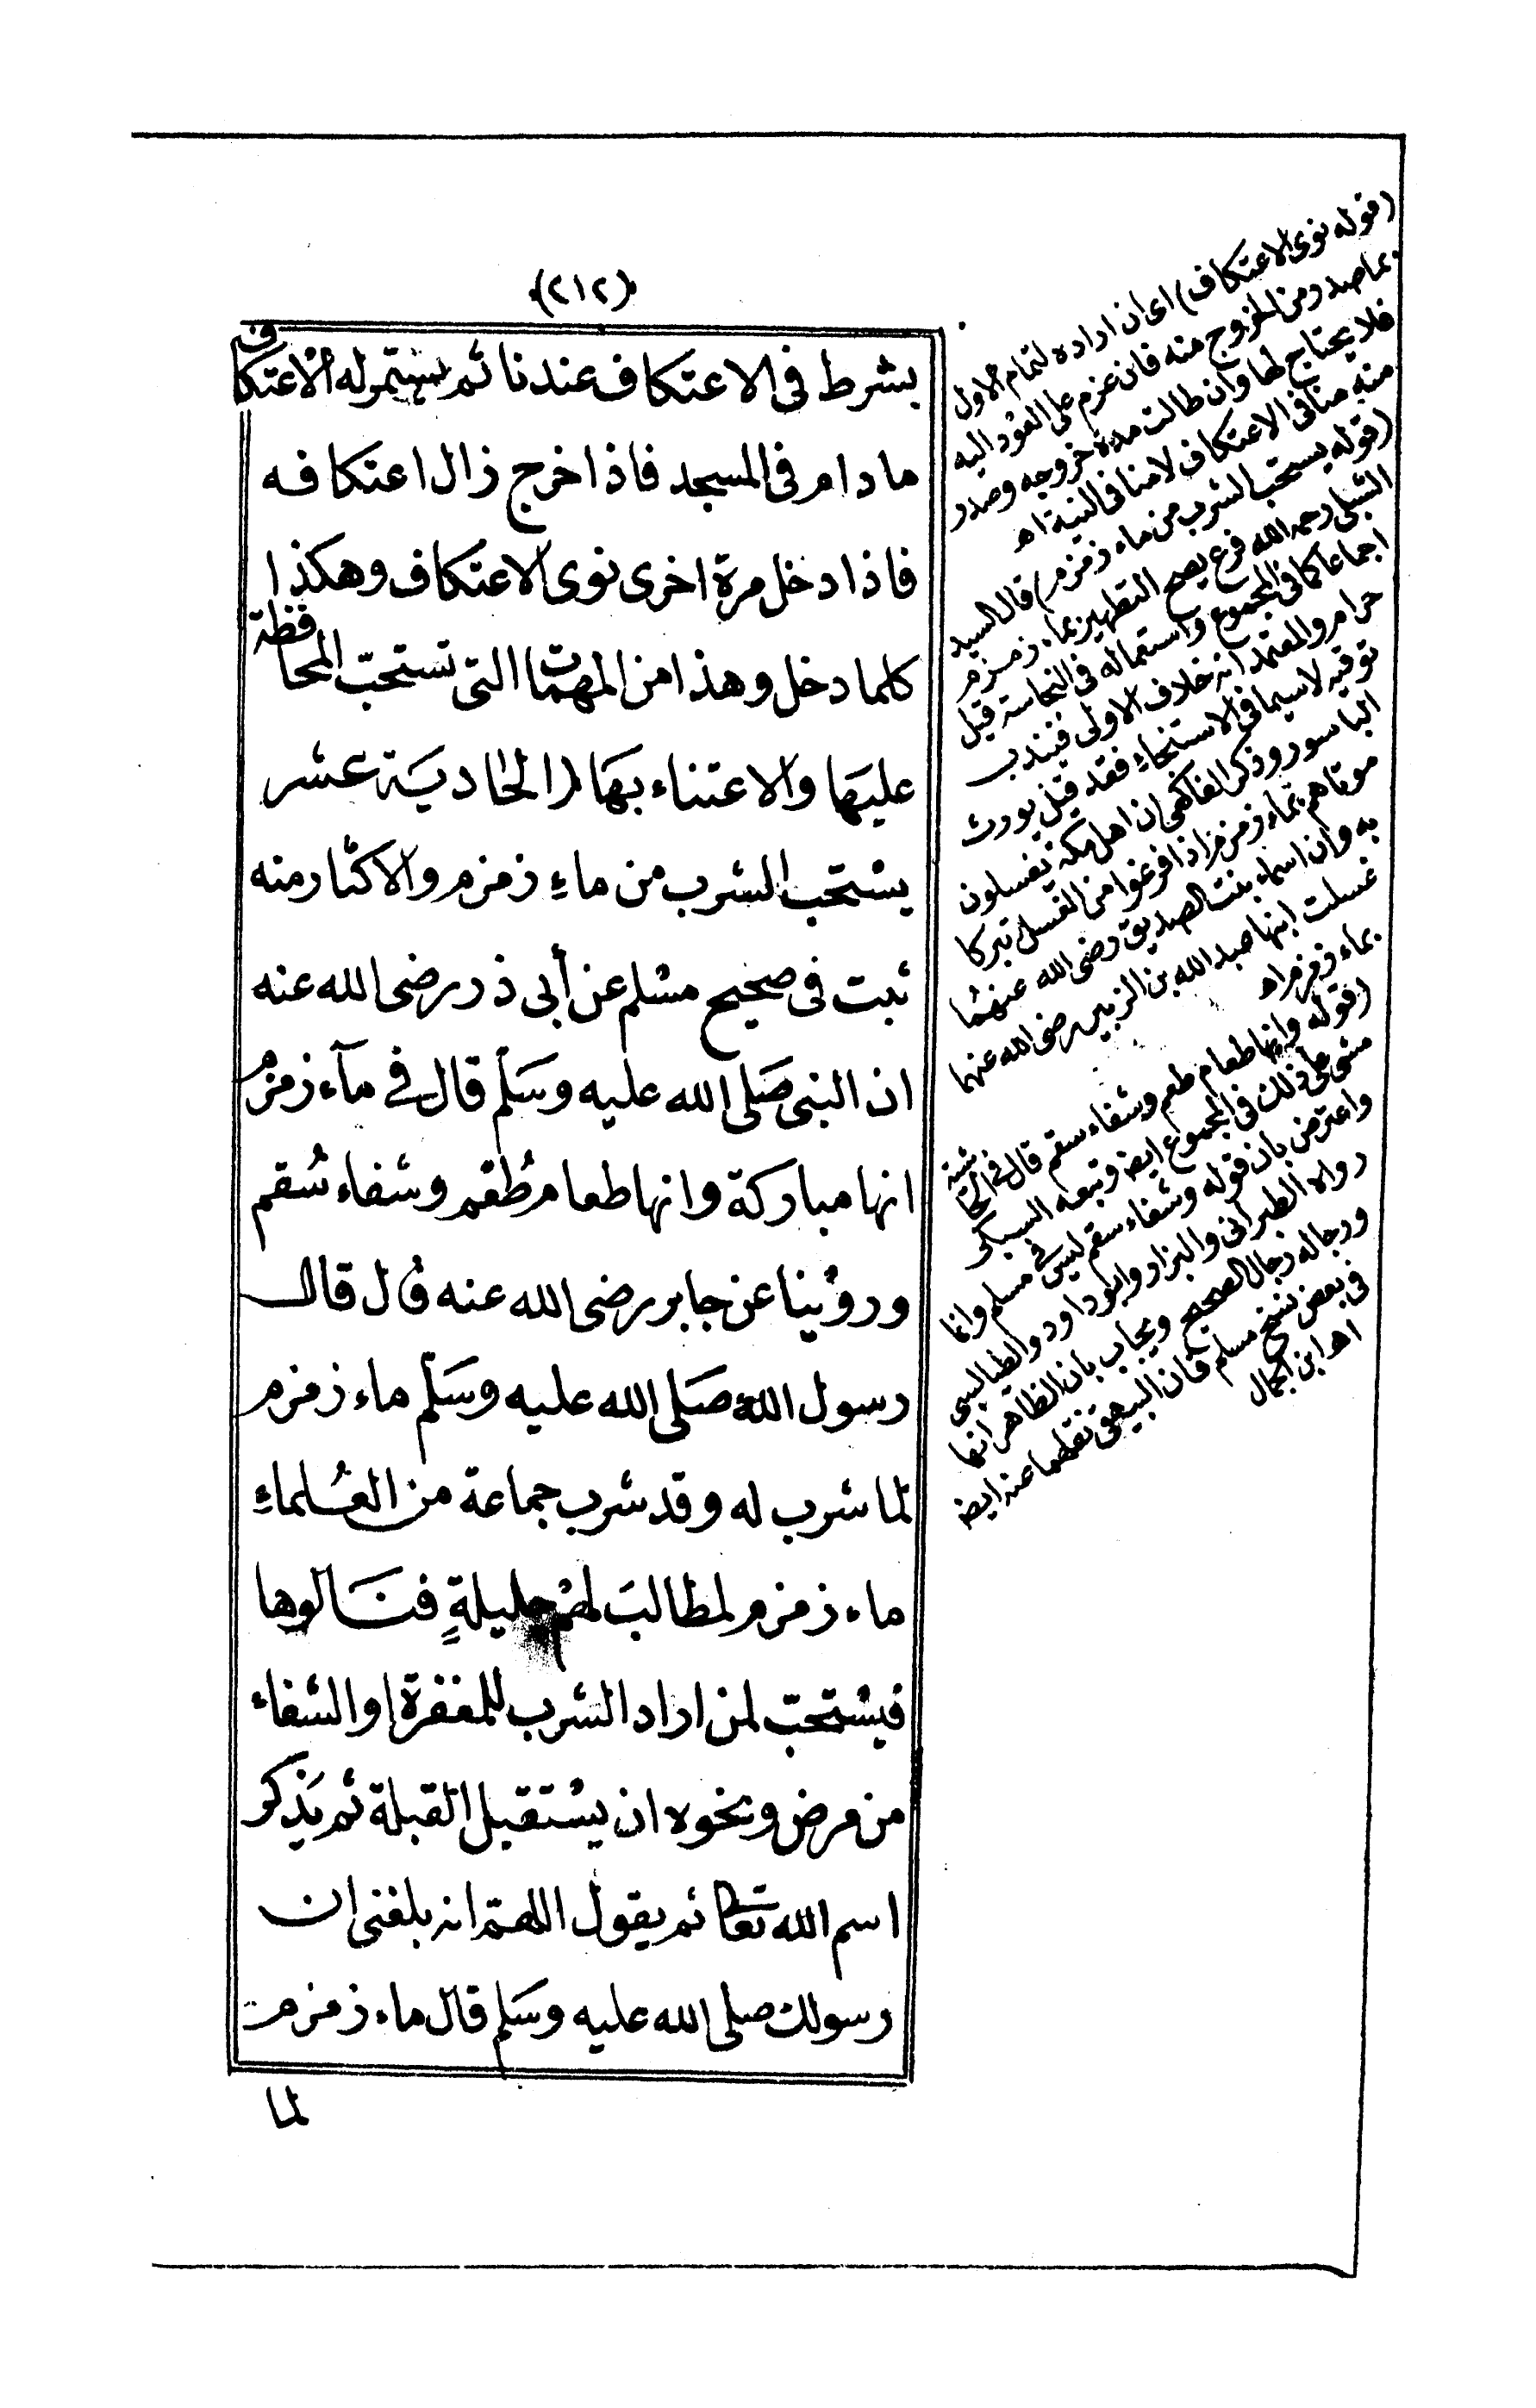 (٢١٢)
بشرط فى الاعتكاف عندنا ثم يستمر له الاعتكاف
مادام فى المسجد فاذا خرج زال اعتكافه
فاذا دخل مرة اخرى نوى الاعتكاف وهكذا
كلما دخل وهذا من المهمات التى تستحبّ المحافظة
عليها والاعتناء بها (الحادية عشر
يستحب الشرب من ماء زمزم والاكثار منه
ثبت فى صحيح مسلم عن أبى ذر رضى الله عنه
ان النبى صَلى الله عليه وسَلّم قال فى مآء زمزم
انها مباركة وانها طعام طُعْم وشفاء سُقم
وروُينا عن جابر رضى الله عنه قال قال
رسول الله صَلى الله عليه وسَلّم ماء زمزم
لما شرب له وقد شرب جماعة من العُلماءِ
ماء زمزم لمطالبَ لهُم جليلةٍ فنَالوها
فيسْتحبّ لمن اراد الشرب للمغفرة او الشفاء
من مرض ونحوه ان يسْتقبل القبلة ثم يَذكر
اسم الله تعالى ثم يقول اللهمّ انه بلغنى ان
رسولك صلى الله عليه وسَلم قال ماء زمزم
لما
(قوله نوى الاعتكاف) اى ان اراده لتمام الاول
بما صدر من الخروج منه فان عزم على العود اليه
فلا يحتاج لها وان طالت مدة خروجه وصدر
منه منافى الاعتكاف لا منافى النية اه
(قوله يستحب الشرب من ماء زمزم) قال السيد
الشلى رحمه الله فرع يصح التطهير بماء زمزم
اجماعا كما فى المجموع واستعماله فى النجاسة قيل
حرام والمعتمد انه خلاف الاولى فيندب
توقيه لاسيما فى الاستنجاء فقد قيل يورث
الباسور وذكر الفاكهى ان اهل مكة يغسلون
موتاهم بماء زمزم اذا فرغوا من الغسل تبركا
به وان اسماء بنت الصديق رضى الله عنهما
غسلت ابنها عبد الله بن الزبير رضى الله عنهما
بماء زمزم اه
(قوله وانها طعام طعم وشفاء سقم قال فى الحاشية
مشى على ذلك فى المجموع ايض وتبعه السبكى
واعترض بان قوله وشفاء سقم ليس فى مسلم وانما
رواه الطبرانى والبزار وابوداود والطيالسى
ورجاله رجال الصحيح ويجاب بان الظاهر انها
فى بعض نسخ مسلم فان البيهقى نقلها عنه ايض
اه ابن الجمال